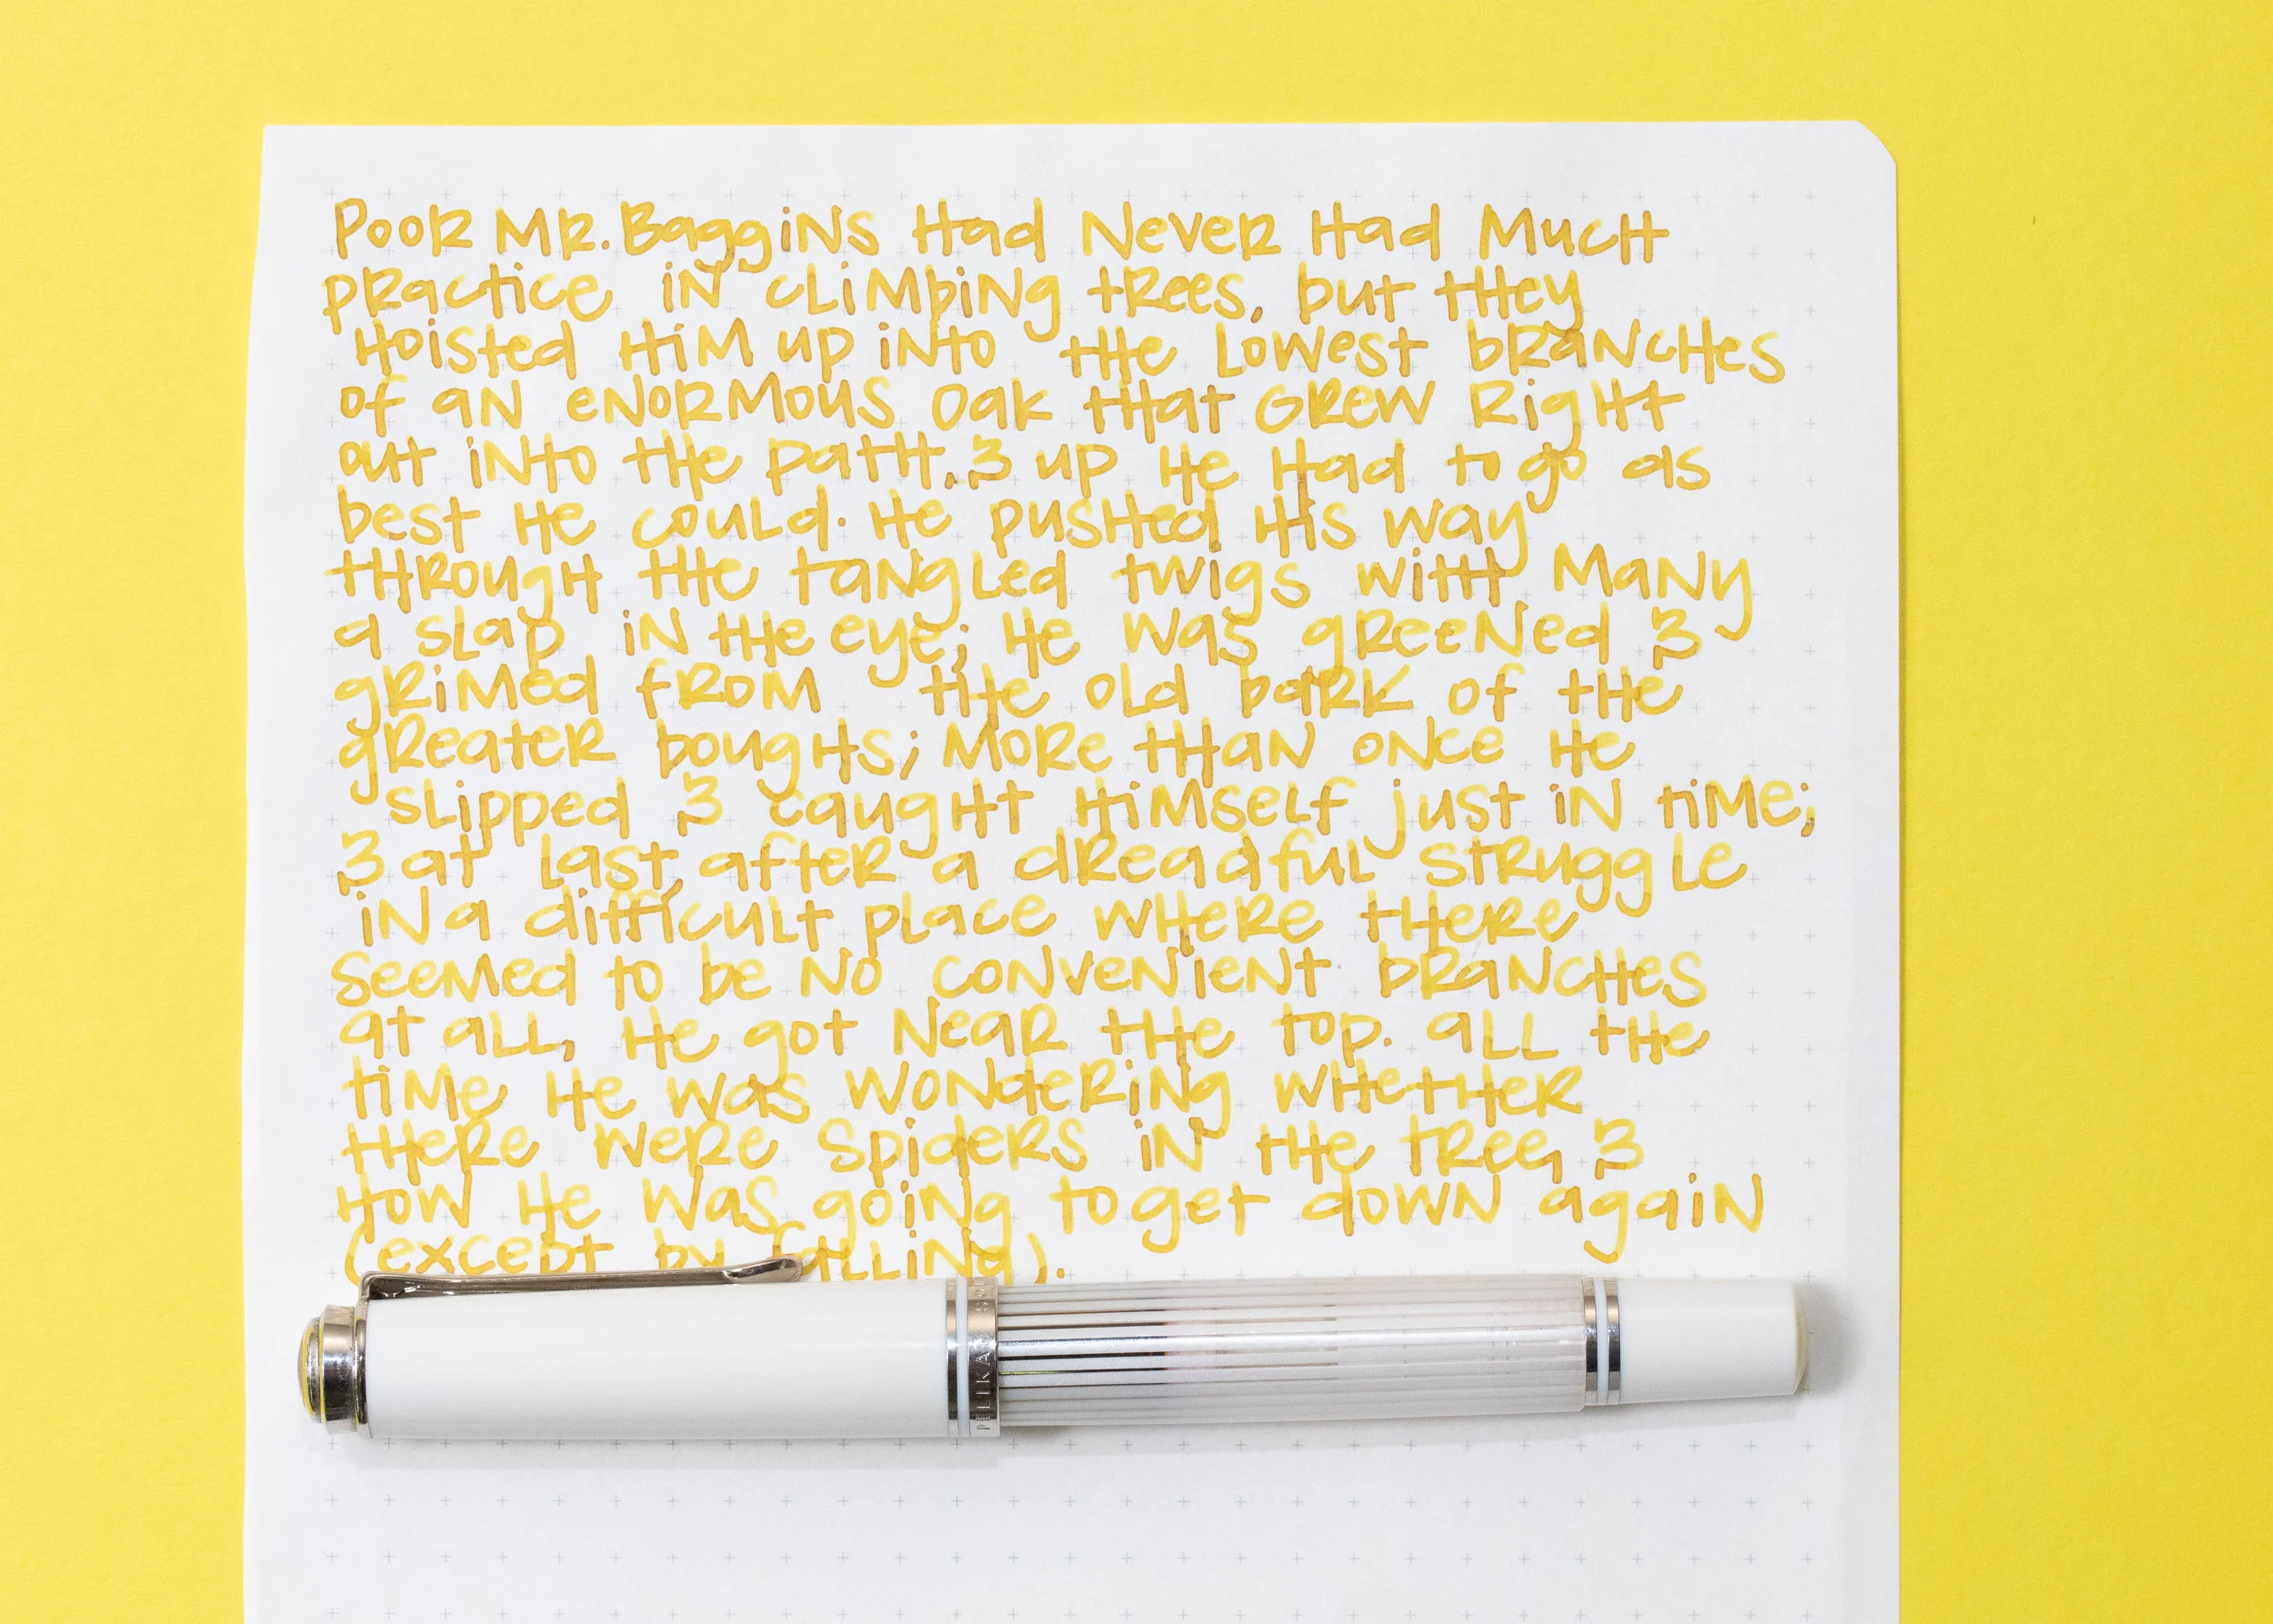 Poor Mr. Baggins had never had much
practice in climbing trees, but they
hoisted him up into the lowest branches
of an enormous oak that grew right
out into the path, & up he had to go as
best he could. He pushed his way
through the tangled twigs with many
a slap in the eye; he was greened &
grimed from the old bark of the
greater boughs; more than once he
slipped & caught himself just in time;
& at last, after a dreadful struggle
in a difficult place where there
seemed to be no convenient branches
at all, he got near the top. all the
time he was wondering whether
there were spiders in the tree, &
how he was going to get down again
(except by falling).
PELIKAN SO